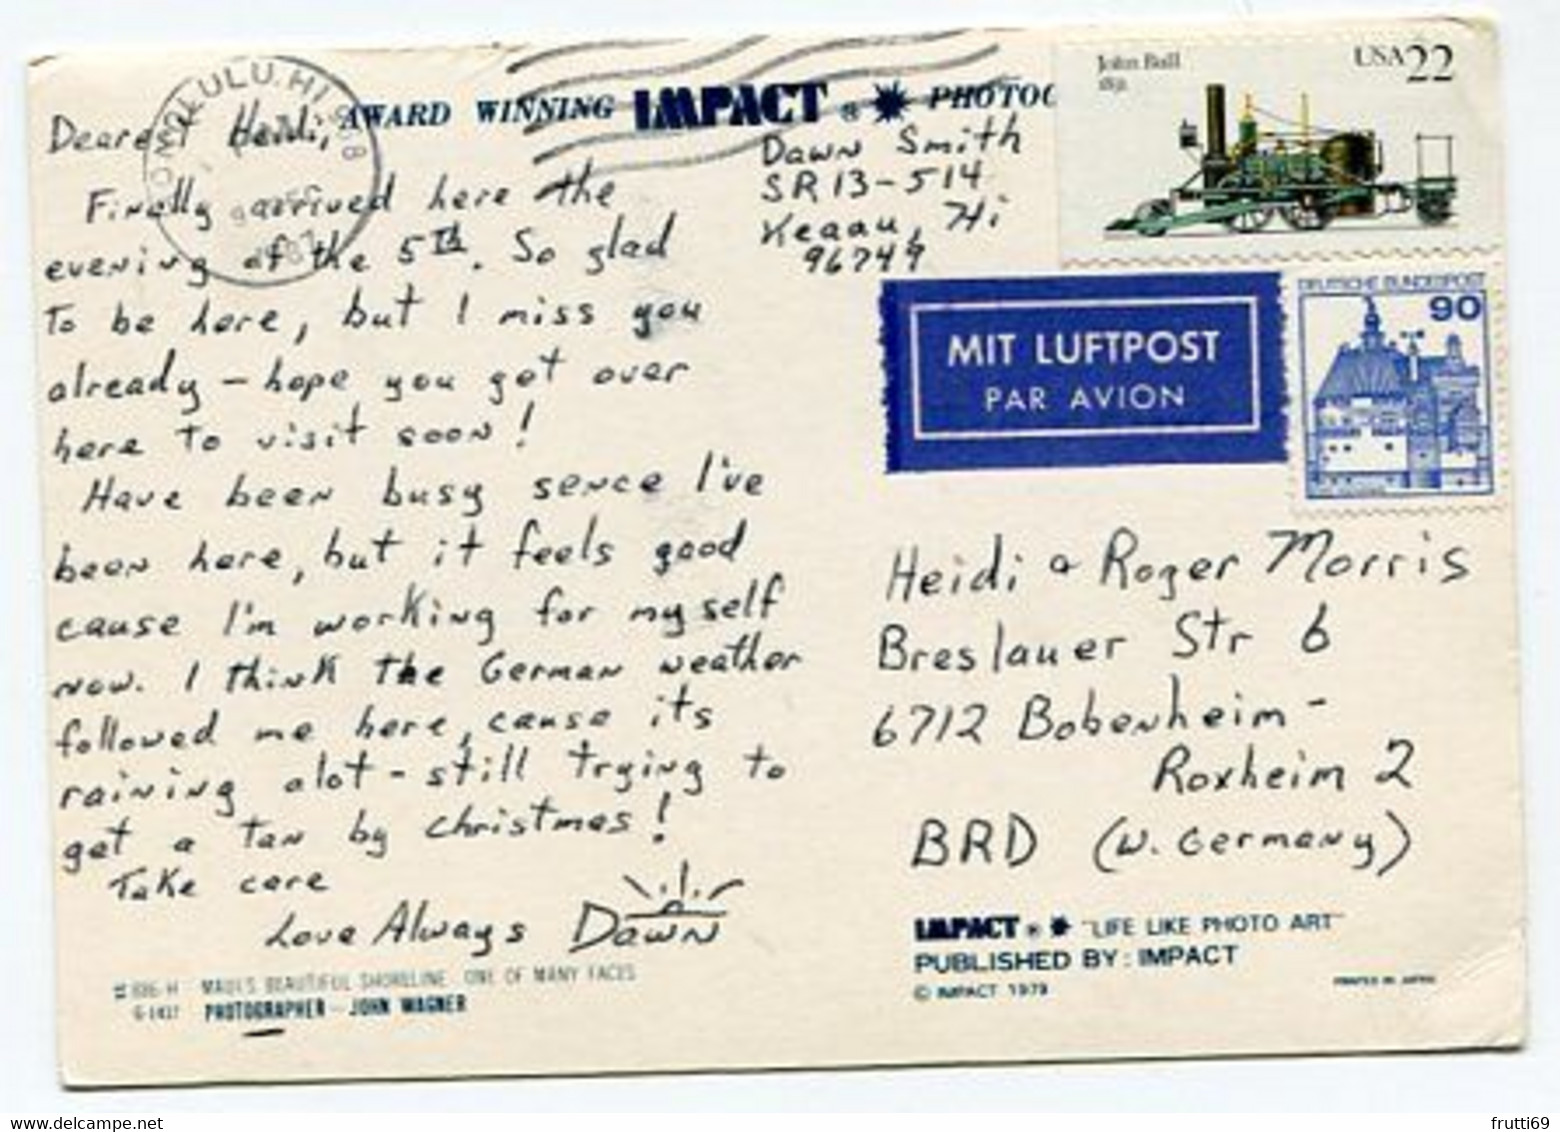 Dearest Heidi,
Finally arrived here the
evening of the 5th. So glad
To be here, but I miss you
already - hope you get over
here To visit soon!
Have been busy sence I've
been here, but it feels good
cause I'm working for myself
now. I think the German weather
followed me here, cause its
raining alot - still trying to
get a Tan by Christmas!
Take care
Love Always Dawn
MAUI'S BEAUTIFUL SHORELINE. ONE OF MANY FACES
PHOTOGRAPHER - JOHN WAGNER
HONOLULU, HI
AWARD WINNING IMPACT ® PHOTOG
Dawn Smith
SR 13-514
Keaau, Hi
96749
John Bull
1831
USA 22
MIT LUFTPOST
PAR AVION
DEUTSCHE BUNDESPOST
90
Heidi & Roger Morris
Breslauer Str 6
6712 Bobenheim-
Roxheim 2
BRD (W. Germany)
IMPACT ® "LIFE LIKE PHOTO ART"
PUBLISHED BY: IMPACT
© IMPACT 1979
PRINTED IN JAPAN
frutti69